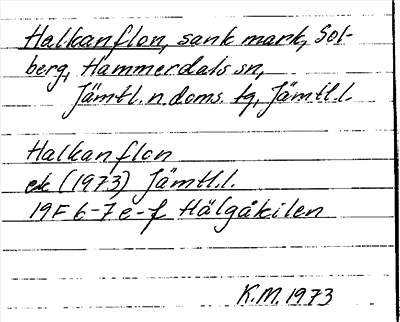 Halkanflon, sank mark, Sol-
berg, Hammerdals sn,
Jämtl. n. doms. tg, Jämtl.l.
Halkanflon
ek (1973) Jämtl.l.
19F 6-7 e-f Hälgåkilen
K.M. 1973